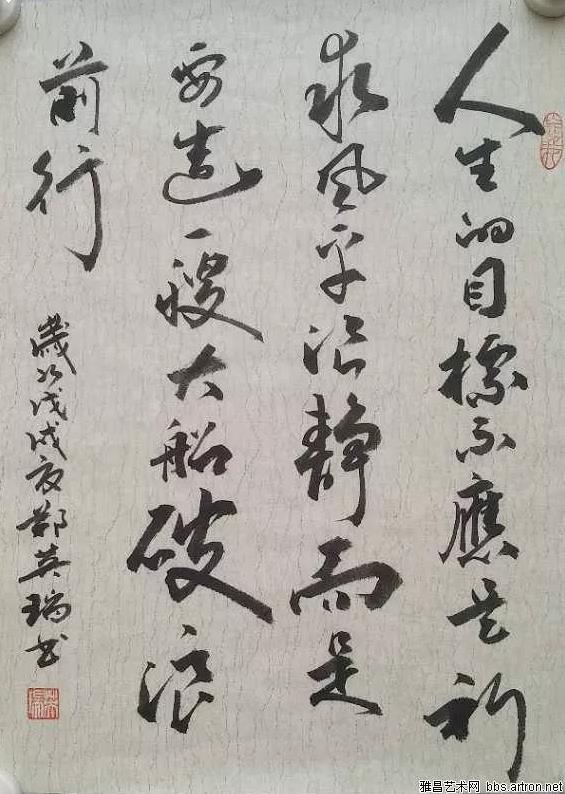 人生的目標不應是祈
求风平浪静而是
要造一艘大船破浪
前行
歲次戊戌夏鄭英瑞书
雅昌艺术网 bbs.artron.net